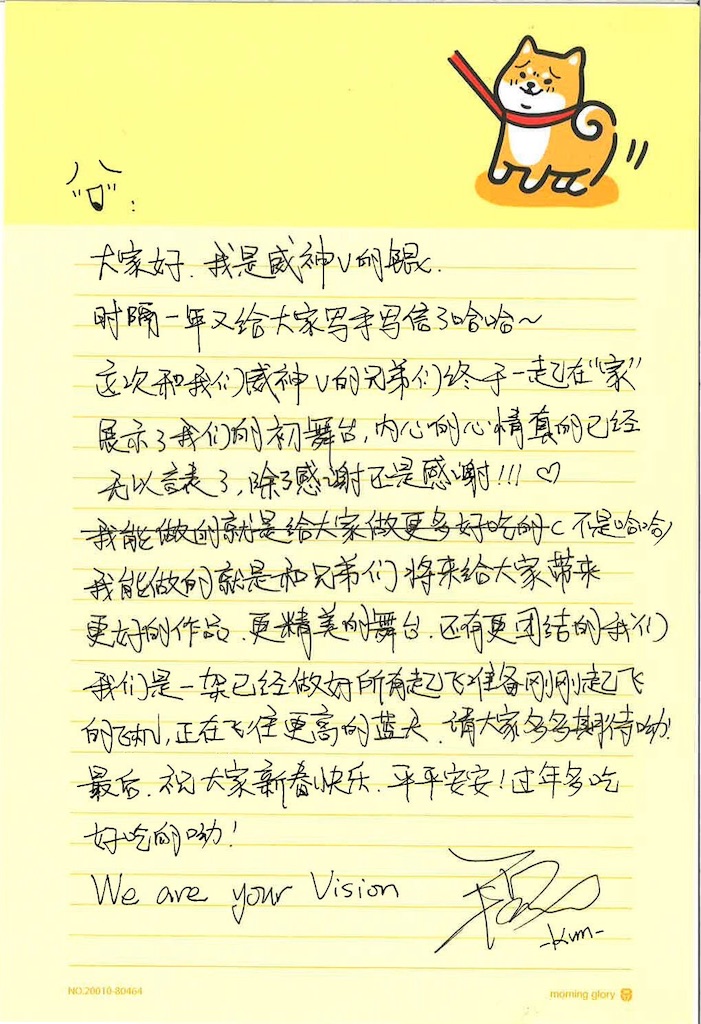 大家好.我是威神V的锟.
时隔一年又给大家写手写信了哈哈~
这次和我们威神V的兄弟们终于一起在"家"
展示了我们的初舞台,内心的心情真的已经
无以言表了,除了感谢还是感谢!!! ♡
我能做的就是给大家做更多好吃的(不是哈哈)
我能做的就是和兄弟们将来给大家带来
更好的作品.更精美的舞台.还有更团结的我们
我们是一架已经做好所有起飞准备刚刚起飞
的飞机,正在飞往更高的蓝天.请大家多多期待呦!
最后.祝大家新春快乐.平平安安!过年多吃
好吃的呦!
We are your Vision
-KUN-
NO.20010-80464
morning glory